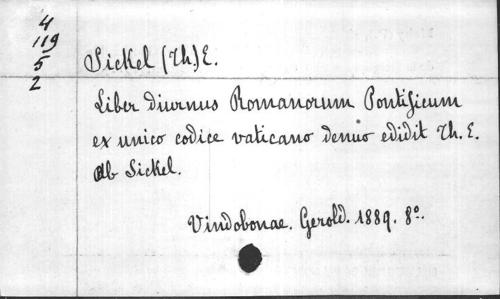 4
119
5
2
Sickel (Th.) E.
Liber diurnus Romanorum Pontificum
ex unico codice vaticano denuo edidit Th. E.
ab Sickel.
Vindobonae. Gerold. 1889. 8º.